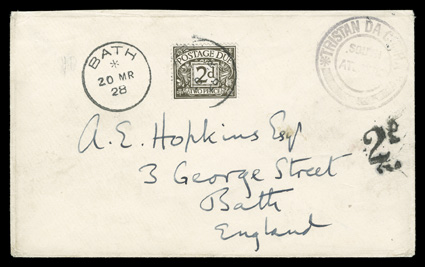 BATH
20 MR
28
POSTAGE DUE
2d
TWO PENCE
TRISTAN DA
SO
AT
2d
A. E. Hopkins Esq
3 George Street
Bath
England